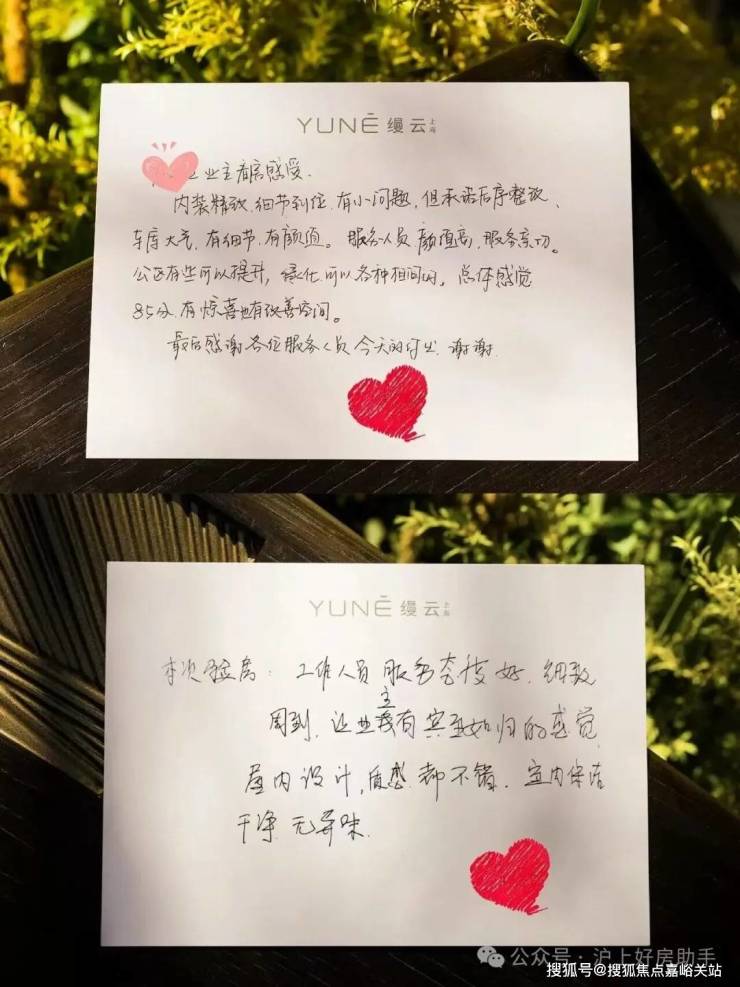 YUNĒ 缦云 上海
业主看房感受.
内装精致.细节到位.有小问题,但承诺后序整改、
车库大气,有细节.有颜值。服务人员,颜值高,服务亲切。
公区有些可以提升,绿化.可以各种相间的。总体感觉
85分.有惊喜也有改善空间。
最后感谢各位服务人员今天的付出.谢谢.
YUNĒ 缦云 上海
本次验房:工作人员服务态度好.细致
周到.让业主有宾至如归的感觉
屋内设计,质感都不错.室内保洁
干净.无异味.
公众号·沪上好房助手
搜狐号@搜狐焦点嘉峪关站